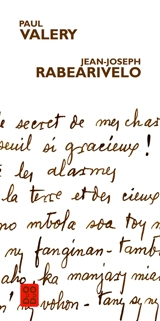 PAUL
VALERY
JEAN-JOSEPH
RABEARIVELO
e secret de mes char
seuil si gracieux !
les alarmes
la terre et des cieux
no mbola soa toy n
ny fanginan- tamb
ka manjary mia
ny vohon - tany sy ny